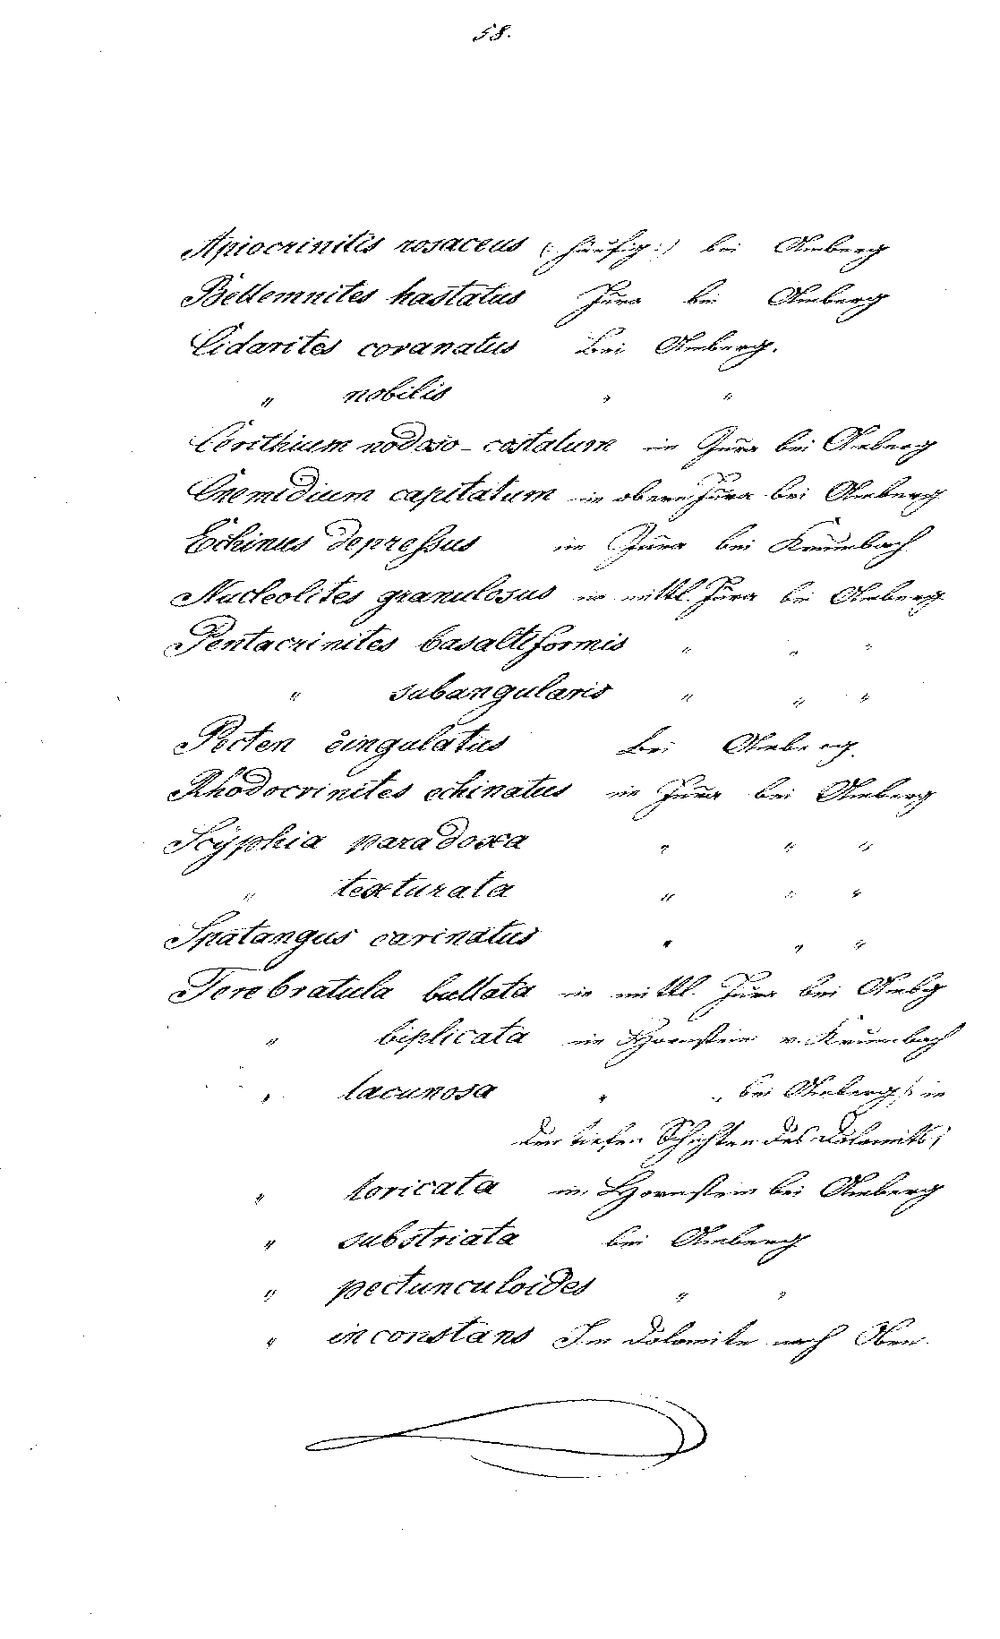 58.
Apiocrinitis rosaceus (: häufig :) bei Amberg
Bellemnites hastatus Jura bei Amberg
Cidarites coranatus bei Amberg.
" nobilis " "
Cerithium nodoso-costatum im Jura bei Amberg
Cnemidium capitatum im obern Jura bei Amberg
Echinus depressus im Jura bei Krumbach
Nucleolites granulosus im mittl. Jura bei Amberg
Pentacrinites basaltiformis " " "
" subangularis " " "
Pecten cingulatus bei Amberg.
Rhodocrinites echinatus im Jura bei Amberg
Scÿphia paradoxa " " "
" texturata " " "
Spatangus carinatus " " "
Terebratula bullata im mittl. Jura bei Ambg
" biplicata im Hornstein v. Krumbach
" lacunosa " " bei Amberg /: in
den tiefen Schichten des Dolomits :/
" loricata im Hornstein bei Amberg
" substriata bei Amberg
" pectunculoides " "
" inconstans Im Dolomite nach Oben.